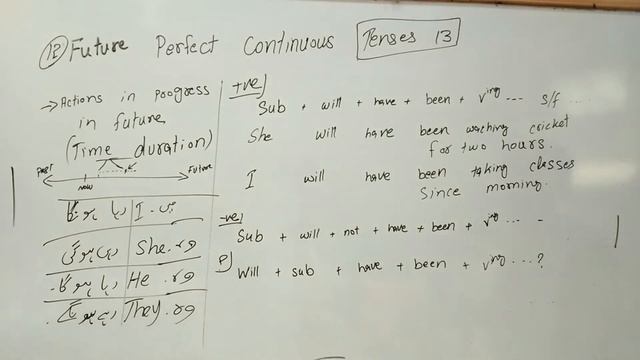 12 Future Perfect Continuous Tenses 13
→ Actions in progress
in future
(Time duration)
Past now Future
میں I رہا ہوں گا
وہ She رہی ہوگی
وہ He رہا ہوگا
وہ They رہے ہونگے
+ve)
Sub + will + have + been + ving ... s/f ...
She will have been waching cricket
for two hours.
I will have been taking classes
since morning.
-ve)
Sub + will + not + have + been + ving ... -
?) Will + sub + have + been + ving ...?